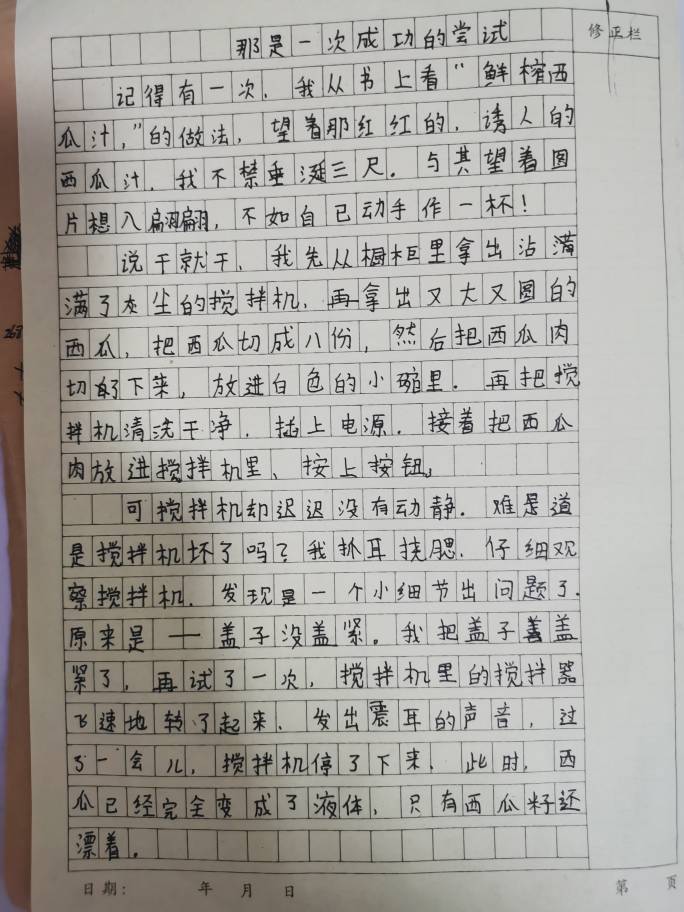 那是一次成功的尝试
修正栏
记得有一次，我从书上看“鲜榨西
瓜汁，”的做法，望着那红红的，诱人的
西瓜汁，我不禁垂涎三尺。与其望着图
片想入翩翩，不如自己动手作一杯！
说干就干，我先从橱柜里拿出沾满
满了灰尘的搅拌机，再拿出又大又圆的
西瓜，把西瓜切成八份，然后把西瓜肉
切下来，放进白色的小碗里．再把搅
拌机清洗干净．插上电源．接着把西瓜
肉放进搅拌机里、按上按钮。
可搅拌机却迟迟没有动静．难是道
是搅拌机坏了吗？我抓耳挠腮．仔细观
察搅拌机．发现是一个小细节出问题了．
原来是——盖子没盖紧。我把盖子盖
紧了，再试了一次，搅拌机里的搅拌器
飞速地转了起来．发出震耳的声音，过
了一会儿，搅拌机停了下来．此时，西
瓜已经完全变成了液体，只有西瓜籽还
漂着。
日期：　年　月　日　第　页